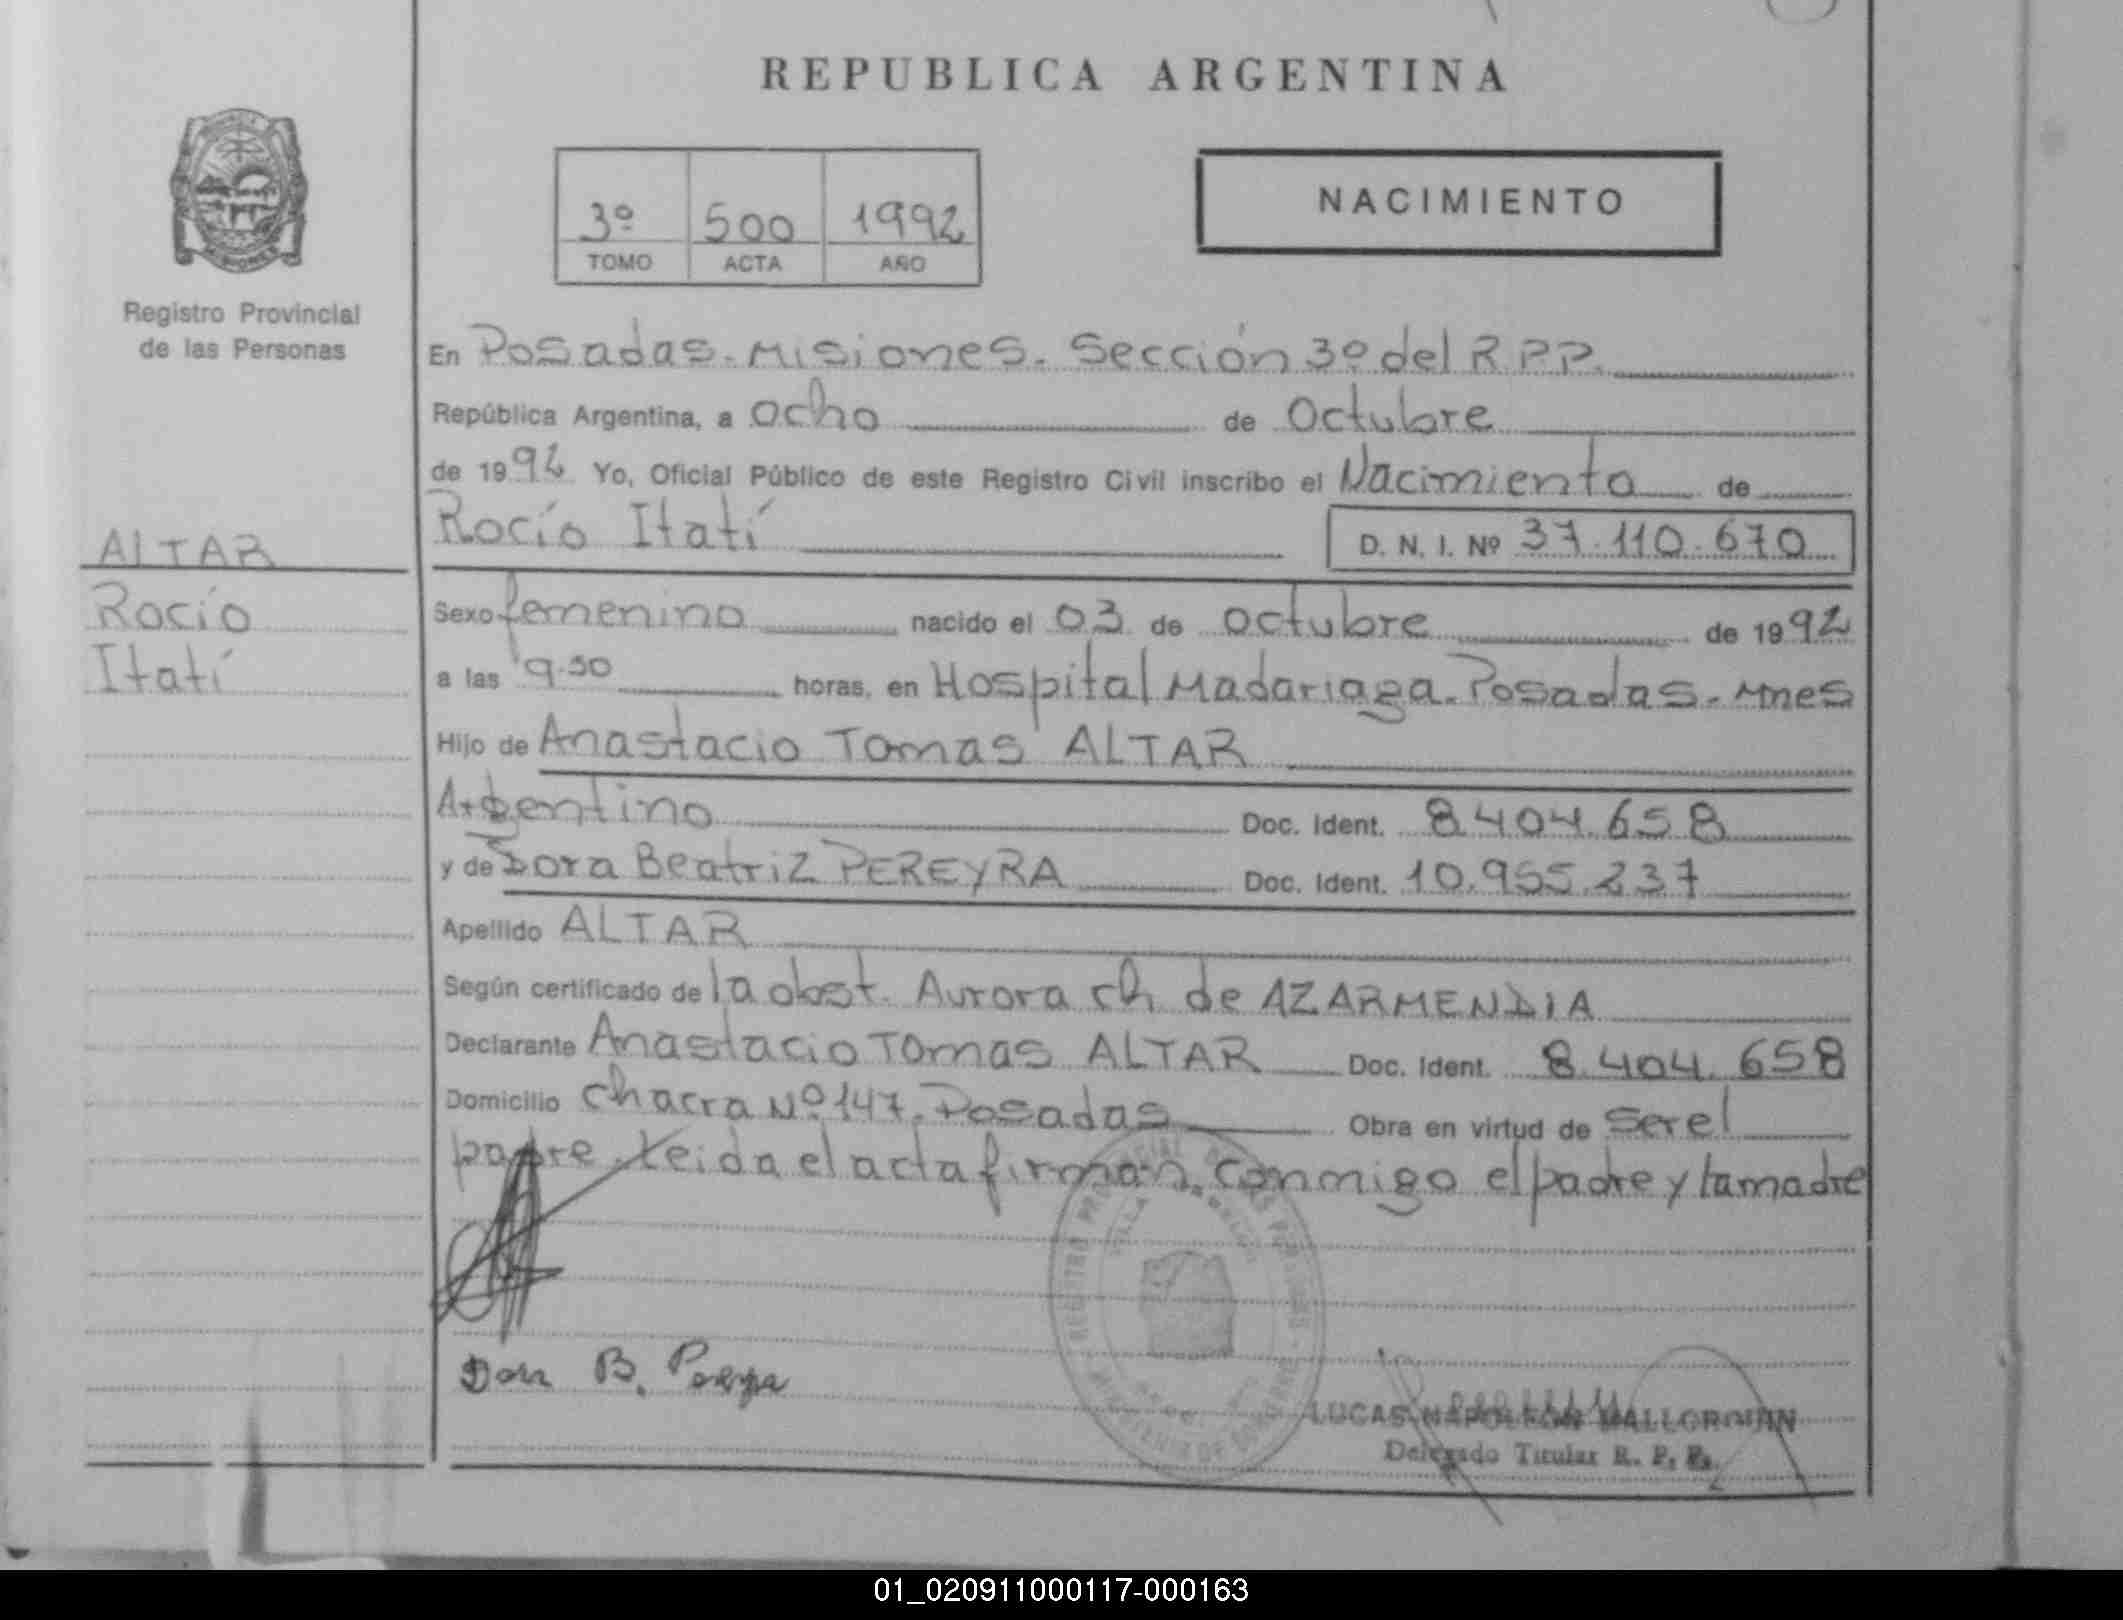 REPUBLICA ARGENTINA
NACIMIENTO
3º 500 1992
TOMO ACTA AÑO
Registro Provincial
de las Personas
ALTAR
Rocío
Itatí
En Posadas. Misiones. Sección 3º del R.P.P.
República Argentina, a ocho de Octubre
de 1992 Yo, Oficial Público de este Registro Civil inscribo el Nacimiento de
Rocío Itatí D. N. I. Nº 37.110.670
Sexo femenino nacido el 03 de octubre de 1992
a las 9.50 horas, en Hospital Madariaga. Posadas. Mnes
Hijo de Anastacio Tomas ALTAR
Argentino Doc. Ident. 8.404.658
y de Dora Beatriz PEREYRA Doc. Ident. 10.955.237
Apellido ALTAR
Según certificado de la obst. Aurora ch. de AZARMENDIA
Declarante Anastacio Tomas ALTAR Doc. Ident. 8.404.658
Domicilio Chacra Nº 147. Posadas Obra en virtud de ser el
padre. Leida el acta firman conmigo el padre y la madre
REGISTRO PROVINCIAL DE LAS PERSONAS
VILLA
DE GOBIERNO
B.
LUCAS NAPOLEON
Delegado Titular R. P. P.
01_020911000117-000163